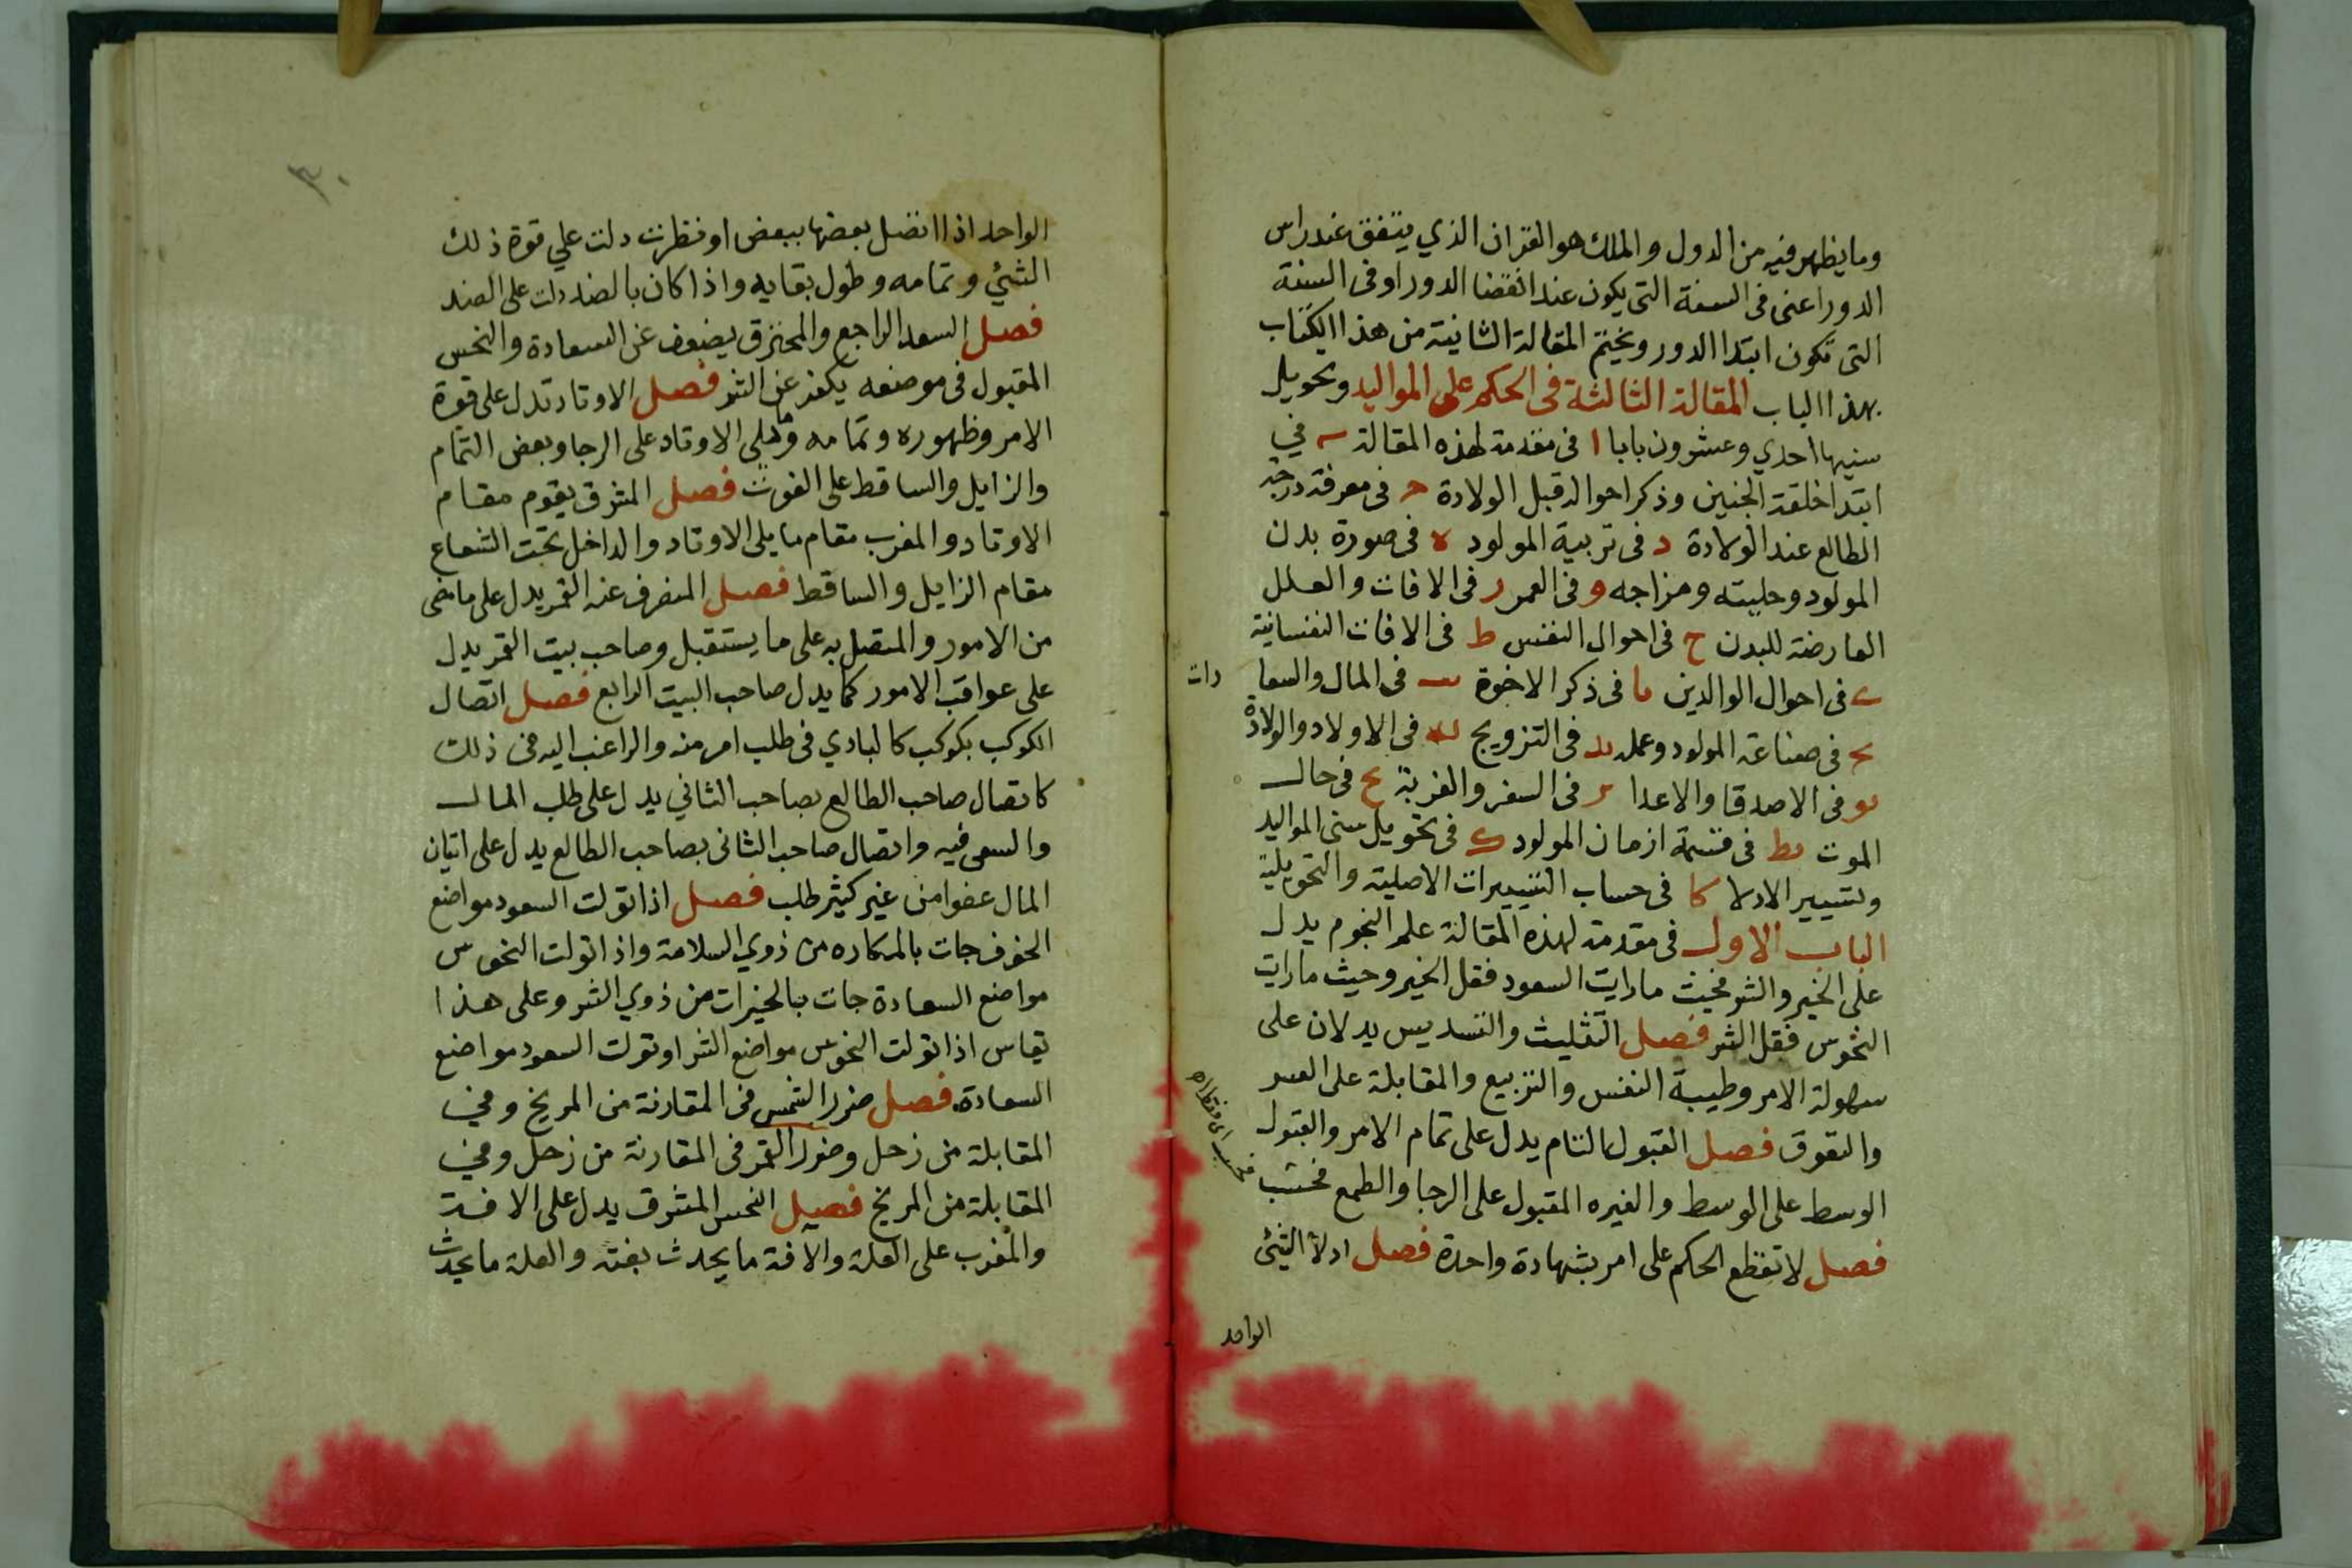 وما يظهر فيه من الدول والملك هو القران الذي يتفق عند راس
الدور اعنى فى السنة التى يكون عند انقضا الدور او فى السنة
التى تكون ابتدا الدور ونختم المقالة الثانية من هذا الكتاب
بهذا الباب المقالة الثالثة فى الحكم على المواليد وتحويل
سنيها احدي وعشرون بابا ا فى مقدمة لهذه المقالة ب في
ابتدا خلقة الجنين وذكر احواله قبل الولادة ح فى معرفة درجة
الطالع عند الولادة د فى تربية المولود ه فى صورة بدن
المولود وحليته ومزاجه و فى العمر ر فى الافات والعلل
العارضة للبدن ح فى احوال النفس ط فى الافات النفسانية
ى فى احوال الوالدين يا فى ذكر الاخوة يب فى المال والسعا دات
يح فى صناعة المولود وعمله يد فى التزويج يه فى الاولاد والولادة
يو فى الاصدقا والاعدا ير فى السفر والغربة يح فى حال
الموت يط فى قسمة ازمان المولود ك فى تحويل سنى المواليد
وتسيير الادلا كا فى حساب التسييرات الاصلية والتحويلية
الباب الاول فى مقدمة لهذه المقالة علم النجوم يدل
على الخير والشر فحيث ما رايت السعود فقل الخير وحيث ما رايت
النحوس فقل الشر فصل التثليث والتسديس يدلان على
سهولة الامر وطيبة النفس والتربيع والمقابلة على العسر
والتعوق فصل القبول التام يدل على تمام الامر والقبول
الوسط على الوسط والغيره المقبول على الرجا والطمع فحسب
فحسب اى فقط
فصل لا تقطع الحكم على امر بشهادة واحدة فصل ادلا الشئ
الواحد
٣٠
الواحد اذا اتصل بعضها ببعض او نظرت دلت علي قوة ذلك
الشئ وتمامه وطول بقايه واذا كان بالضد دلت على الضد
فصل السعد الراجع والمحترق يضعف عن السعادة والنحس
المقبول فى موضعه يكف عن الشر فصل الاوتاد تدل على قوة
الامر وظهوره وتمامه وما يلى الاوتاد على الرجا وبعض التمام
والزايل والساقط على الفوت فصل المشرق يقوم مقام
الاوتاد والمغرب مقام ما يلى الاوتاد والداخل تحت الشعاع
مقام الزايل والساقط فصل المنصرف عنه القمر يدل على ما مضى
من الامور والمتصل به على ما يستقبل وصاحب بيت القمر يدل
على عواقب الامور كما يدل صاحب البيت الرابع فصل اتصال
الكوكب بكوكب كالبادي فى طلب امر منه والراغب اليه فى ذلك
كاتصال صاحب الطالع بصاحب الثاني يدل على طلب المال
والسعى فيه واتصال صاحب الثانى بصاحب الطالع يدل على اتيان
المال عفوا من غير كثير طلب فصل اذا تولت السعود مواضع
الخوف جات بالمكاره من ذوي السلامة واذا تولت النحوس
مواضع السعادة جات بالخيرات من ذوي الشر وعلى هذا
يقاس اذا تولت النحوس مواضع الشر او تولت السعود مواضع
السعادة فصل ضرر الشمس فى المقارنة من المريخ وفي
المقابلة من زحل وضرر القمر فى المقارنة من زحل وفي
المقابلة من المريخ فصل النحس المشرق يدل على الافة
والمغرب على العلة والافة ما يحدث بغتة والعلة ما يحدث